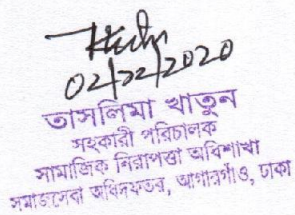 02/22/2020
তাসলিমা খাতুন
সহকারী পরিচালক
সামাজিক নিরাপত্তা অধিশাখা
সমাজসেবা অধিদফতর, আগারগাঁও, ঢাকা